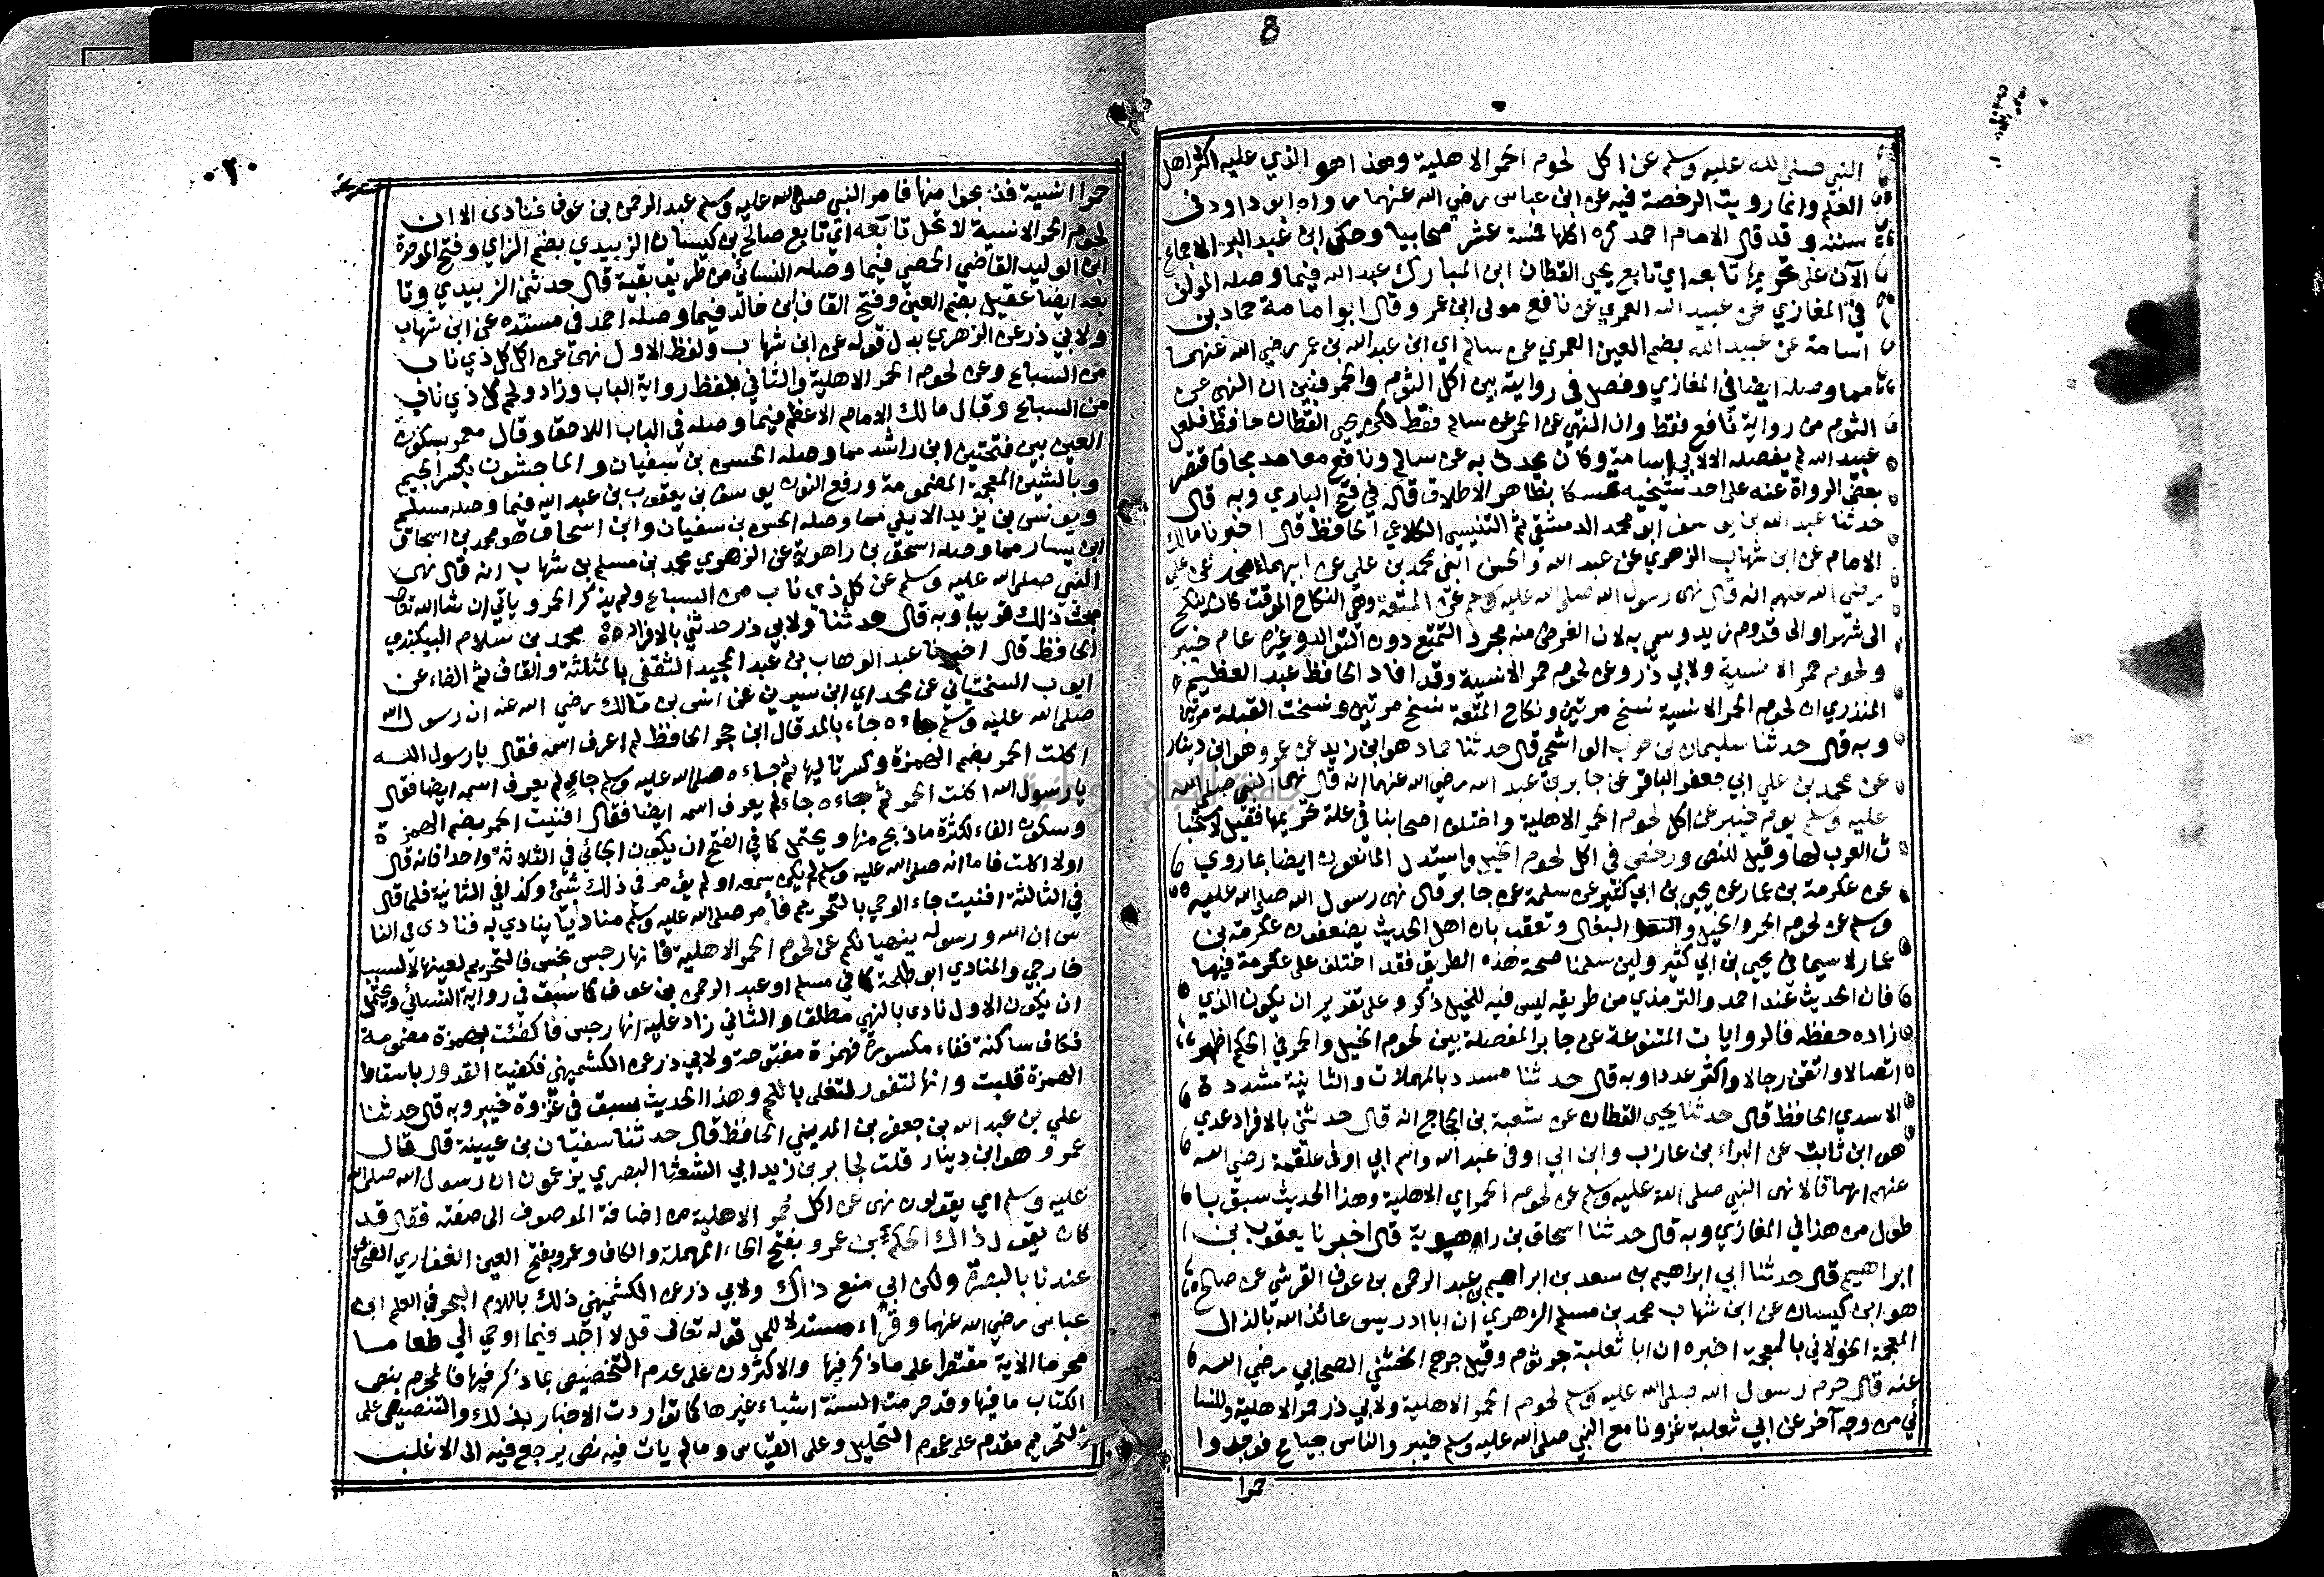 8
النبي صلى الله عليه وسلم عن اكل لحوم الحمر الاهلية وهذا هو الذي عليه اكثر اهل
العلم وانما رويت الرخصة فيه عن ابن عباس رضي الله عنهما رواه ابو داود في
سننه وقد قال الامام احمد كره اكلها خمسة عشر صحابيا وحكى ابن عبد البر الاجماع
الآن على تحريمها تابعه اي تابع يحيى القطان ابن المبارك عبد الله فيما وصله المولف
في المغازي عن عبيد الله العمري عن نافع مولى ابن عمر وقال ابو اسامة حماد بن
اسامة عن عبيد الله بضم العين العمري عن سالم اي ابن عبد الله بن عمر رضي الله عنهما
مما وصله ايضا في المغازي وفصل في روايته بين اكل الثوم والحمر فبين ان النهي عن
الثوم من رواية نافع فقط وان النهي عن الحمر عن سالم فقط لكن يحيى القطان حافظ فلعل
عبيد الله لم يفصله الا لابي اسامة وكان يحدث به عن سالم ونافع معا مدمجا فاقتصر
بعض الرواة عنه على احد شيخيه تمسكا بظاهر الاطلاق قاله في فتح الباري وبه قال
حدثنا عبد الله بن يوسف ابو محمد الدمشقي ثم التنيسي الكلاعي الحافظ قال اخبرنا مالك
الامام عن ابن شهاب الزهري عن عبد الله والحسن ابني محمد بن علي عن ابيهما محمد عن علي
رضي الله عنهم انه قال نهى رسول الله صلى الله عليه وسلم عن المتعة وهي النكاح الموقت كان ينكح
الى شهر او الى قدوم زيد وسمي به لان الغرض منه مجرد التمتع دون التوالد وغيره عام خيبر
ولحوم حمر الانسية ولابي ذر وعن لحوم حمر الانسية وقد افاد الحافظ عبد العظيم
المنذري ان لحوم الحمر الانسية نسخ مرتين ونكاح المتعة نسخ مرتين ونسخت القبلة مرتين
وبه قال حدثنا سليمان بن حرب الواشحي قال حدثنا حماد هو ابن زيد عن عمرو هو ابن دينار
عن محمد بن علي ابي جعفر الباقر عن جابر بن عبد الله رضي الله عنهما انه قال نهى النبي صلى الله
عليه وسلم يوم خيبر عن اكل لحوم الحمر الاهلية واختلف اصحابنا في علة تحريمها فقيل لاستخبا
ث العرب لها وقيل للنص ورخص في اكل لحوم الخيل واستدل المانعون ايضا بما روي
عن عكرمة بن عمار عن يحيى بن ابي كثير عن سلمة عن جابر قال نهى رسول الله صلى الله عليه
وسلم عن لحوم الحمر والخيل والبغال وتعقب بان اهل الحديث يضعفون عكرمة بن
عمار لا سيما في يحيى بن ابي كثير ولئن سلمنا صحة هذه الطريق فقد اختلف على عكرمة فيها
فان الحديث عند احمد والترمذي من طريقه ليس فيه للخيل ذكر وعلى تقدير ان يكون الذي
زاده حفظه فالروايات المتنوعة عن جابر المفصلة بين لحوم الخيل والحمر في الحكم اظهر
اتصالا واتقن رجالا واكثر عددا وبه قال حدثنا مسدد بالمهملات والثانية مشددة
الاسدي الحافظ قال حدثنا يحيى القطان عن شعبة بن الحجاج انه قال حدثني بالافراد عدي
هو ابن ثابت عن البراء بن عازب وابن ابي اوفى عبد الله واسم ابي اوفى علقمة رضي الله
عنهم انهما قالا نهى النبي صلى الله عليه وسلم عن لحوم الحمر اي الاهلية وهذا الحديث سبق با
طول من هذا في المغازي وبه قال حدثنا اسحاق بن راهويه قال اخبرنا يعقوب بن
ابراهيم قال حدثنا ابي ابراهيم بن سعد بن ابراهيم بن عبد الرحمن بن عوف القرشي عن صالح
هو ابن كيسان عن ابن شهاب محمد بن مسلم الزهري ان ابا ادريس عائذ الله بالذال
المعجمة الخولاني بالمعجمة اخبره ان ابا ثعلبة جرثوم وقيل جرهم الخشني الصحابي رضي الله
عنه قال حرم رسول الله صلى الله عليه وسلم لحوم الحمر الاهلية ولابي ذر حمر الاهلية وللنسا
ئي من وجه آخر عن ابي ثعلبة غزونا مع النبي صلى الله عليه وسلم خيبر والناس جياع فوجدوا
حمرا
٢٠
حمرا انسية فذبحوا منها فامر النبي صلى الله عليه وسلم عبد الرحمن بن عوف فنادى الا ان
لحوم الحمر الانسية لا تحل تابعه اي تابع صالح بن كيسان الزبيدي بضم الزاي وفتح الموحدة
ابن الوليد القاضي الحمصي فيما وصله النسائي من طريق بقية قال حدثني الزبيدي وتا
بعه ايضا عقيل بضم العين وفتح القاف ابن خالد فيما وصله احمد في مسنده عن ابن شهاب
ولابي ذر عن الزهري بدل قوله عن ابن شهاب ولفظ الاول نهى عن اكل كل ذي ناب
من السباع وعن لحوم الحمر الاهلية والثاني بلفظ رواية الباب وزاد ولحم كل ذي ناب
من السباع وقال مالك الامام الاعظم فيما وصله في الباب اللاحق وقال معمر بسكون
العين بين فتحتين ابن راشد مما وصله الحسن بن سفيان والماجشون بكسر الجيم
وبالشين المعجمة المضمومة ورفع النون يوسف بن يعقوب بن عبد الله فيما وصله مسلم
ويونس بن يزيد الايلي مما وصله الحسن بن سفيان وابن اسحاق هو محمد بن اسحاق
ابن يسار مما وصله اسحق بن راهوية عن الزهري محمد بن مسلم بن شهاب انه قال نهى
النبي صلى الله عليه وسلم عن كل ذي ناب من السباع ولم يذكر الحمر وياتي ان شا الله تعالى
بحث ذلك قريبا وبه قال حدثنا ولابي ذر حدثني بالافراد محمد بن سلام البيكندي
الحافظ قال اخبرنا عبد الوهاب بن عبد المجيد الثقفي بالمثلثة والقاف ثم الفاء عن
ايوب السختياني عن محمد اي ابن سيرين عن انس بن مالك رضي الله عنه ان رسول الله
صلى الله عليه وسلم جاءه جاء بالمد قال ابن حجر الحافظ لم اعرف اسمه فقال يا رسول الله
اكلت الحمر بضم الهمزة وكسر تاليها ثم جاءه صلى الله عليه وسلم جاء لم يعرف اسمه ايضا فقال
يا رسول الله اكلت الحمر ثم جاءه جاء لم يعرف اسمه ايضا فقال افنيت الحمر بضم الهمزة
وسكون الفاء لكثرة ما ذبح منها ويحتمل كما في الفتح ان يكون الجائي في الثلاثة واحدا فانه قال
اولا اكلت فاما انه صلى الله عليه وسلم لم يكن سمعه او لم يؤمر في ذلك بشئ وكذا في الثانية فلما قال
في الثالثة افنيت جاء الوحي بالتحريم فامر صلى الله عليه وسلم مناديا ينادي به فنادى في النا
س ان الله ورسوله ينهيانكم عن لحوم الحمر الاهلية فانها رجس نجس فالتحريم لعينها لا لسبب
خارجي والمنادي ابو طلحة كما في مسلم او عبد الرحمن بن عوف كما سبق في رواية النسائي ويحتمل
ان يكون الاول نادى بالنهي مطلقا والثاني زاد عليه انها رجس فاكفئت بهمزة مضمومة
فكاف ساكنة ففاء مكسورة فهمزة مفتوحة ولابي ذر عن الكشميهني فكفئت القدور باسقاط
الهمزة قلبت وانها لتفور لتغلي باللحم وهذا الحديث سبق في غزوة خيبر وبه قال حدثنا
علي بن عبد الله بن جعفر بن المديني الحافظ قال حدثنا سفيان بن عيينة قال قال
عمرو هو ابن دينار قلت لجابر بن زيد ابي الشعثا البصري يزعمون ان رسول الله صلى الله
عليه وسلم اي يقولون نهى عن اكل حمر الاهلية من اضافة الموصوف الى صفته فقال قد
كان يقول ذاك الحكم بن عمرو بفتح الحاء المهملة والكاف وعمرو بفتح العين الغفاري الصحابي
عندنا بالبصرة ولكن ابي منع ذاك ولابي ذر عن الكشميهني ذلك باللام البحر في العلم ابن
عباس رضي الله عنهما وقرأ مستدلا للحل قوله تعالى قل لا اجد فيما اوحي الي طعاما
محرما الآية مقتصرا على ما ذكر فيها والاكثرون على عدم التخصيص بما ذكر فيها فالمحرم بنص
الكتاب ما فيها وقد حرمت السنة اشياء غيرها كما تواردت الاخبار بذلك والتنصيص على
التحريم مقدم على عموم التحليل وعلى القياس وما لم يات فيه نص يرجع فيه الى الاغلب